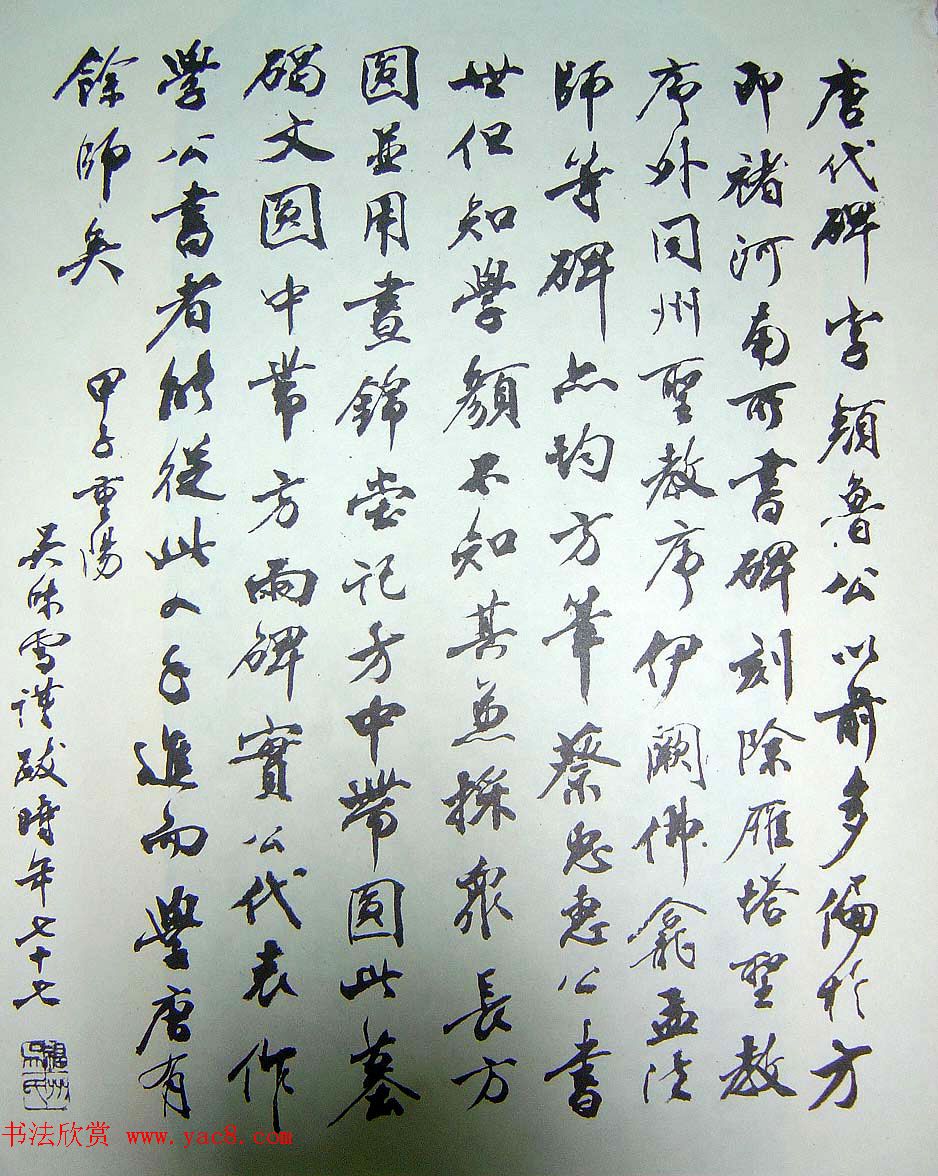 唐代碑字顔魯公以前多偏於方
即褚河南所書碑刻除雁塔聖教
序外同州聖教序伊闕佛龕孟法
師等碑亦均方筆蔡忠惠公書
世但知學顏不知其兼採衆長方
圓並用晝錦堂記方中帶圓此墓
碣文圓中帶方兩碑實公代表作
學公書者能從此入手進而學唐有
餘師矣
甲子重陽
吳味雪謹跋時年七十七
書法欣赏 www.yac8.com